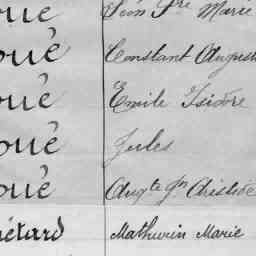 oué Jean Pre Marie
oué Constant Auguste
oué Emile Isidore
oué Jules
oué Augte Jn Aristide
étard Mathurin Marie